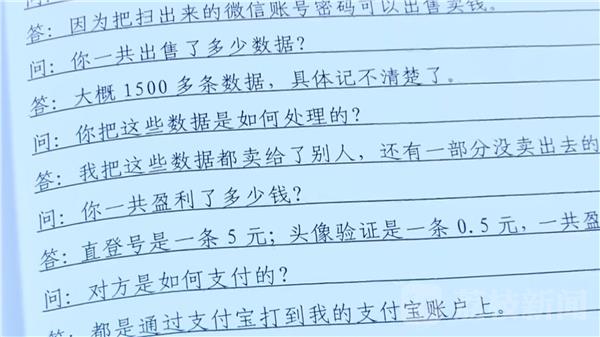 答：因为把扫出来的微信账号密码可以出售卖钱。
问：你一共出售了多少数据？
答：大概 1500 多条数据，具体记不清楚了。
问：你把这些数据是如何处理的？
答：我把这些数据都卖给了别人，还有一部分没卖出去的
问：你一共盈利了多少钱？
答：直登号是一条 5 元；头像验证是一条 0.5 元，一共盈
问：对方是如何支付的？
答：都是通过支付宝打到我的支付宝账户上。
荔枝新闻